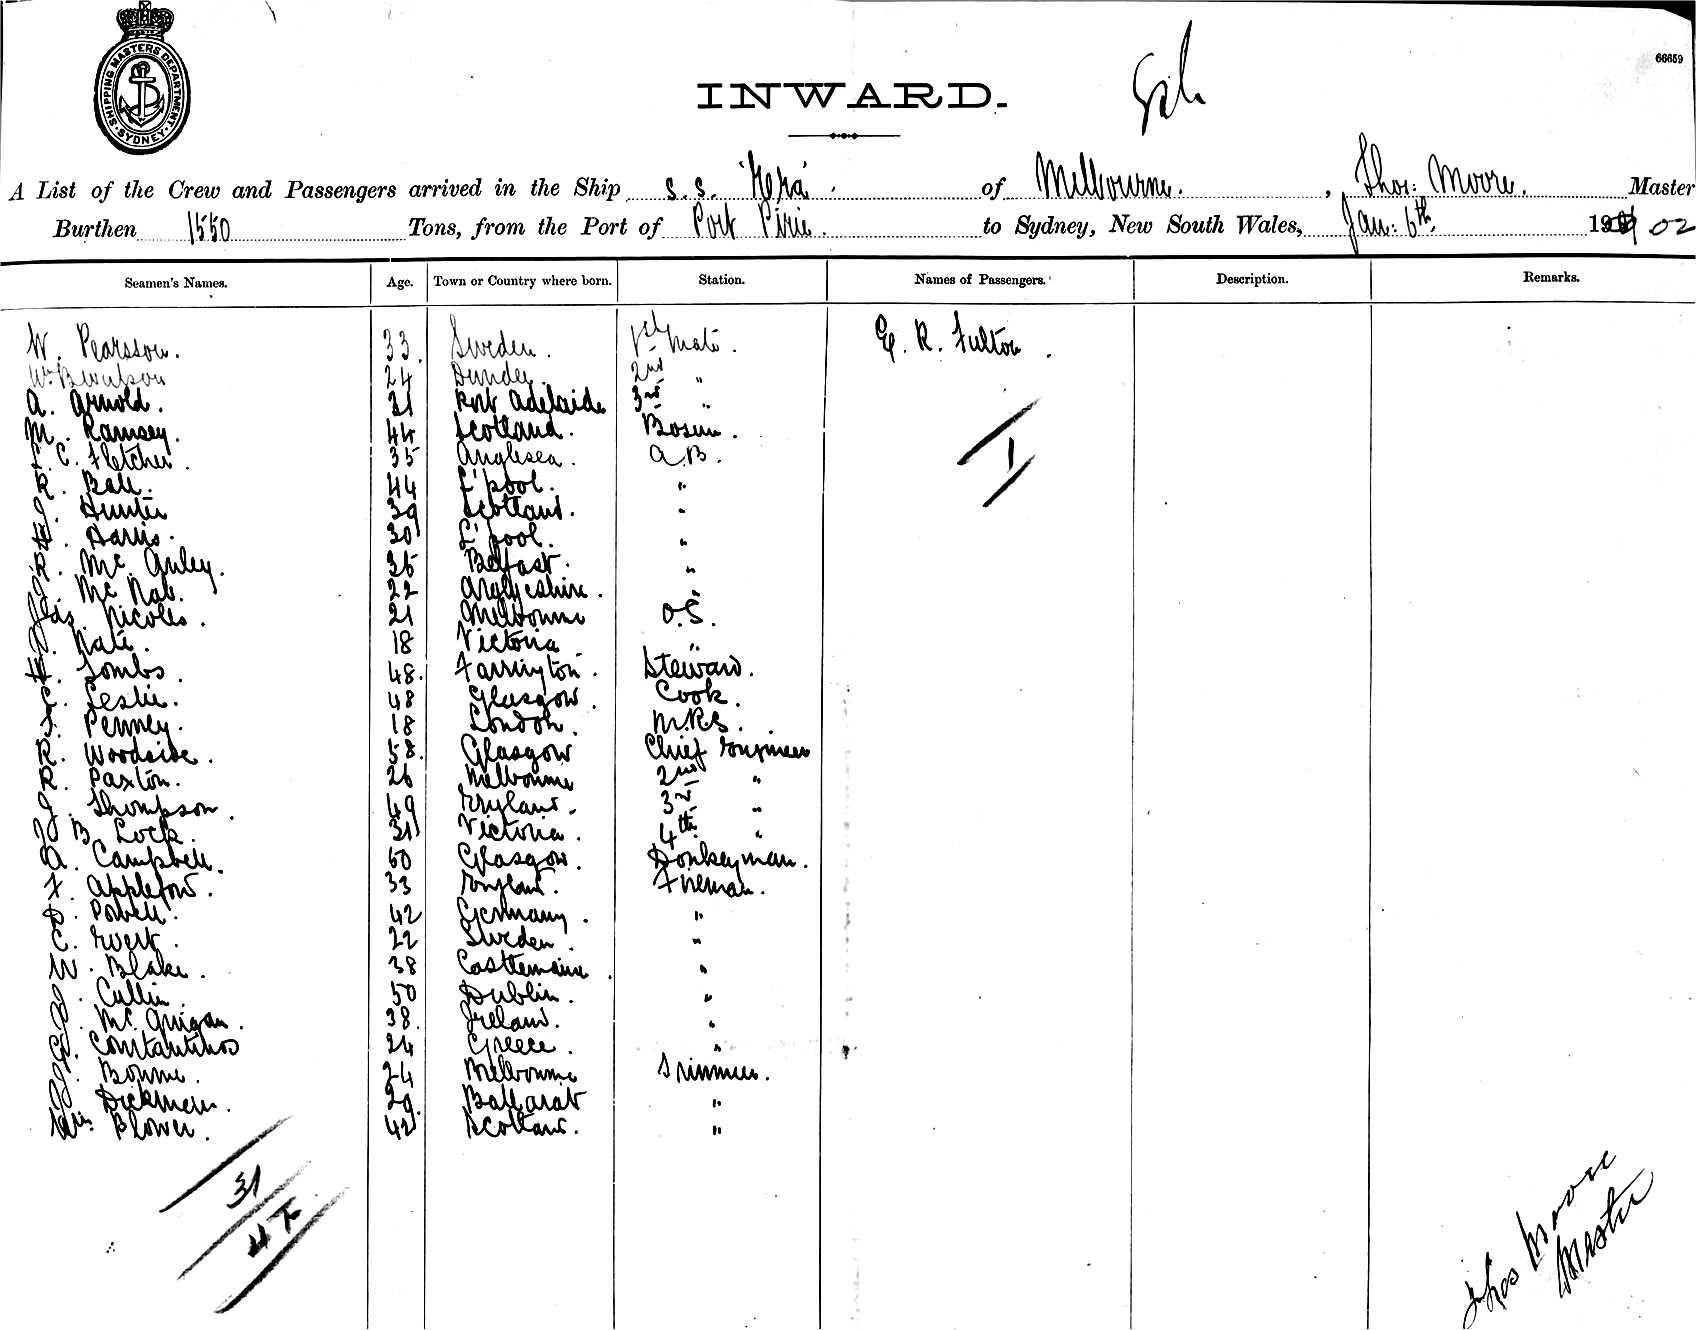 SHIPPING MASTERS DEPARTMENT
SYDNEY
66659
INWARD.
A List of the Crew and Passengers arrived in the Ship s.s. 'Kera' of Melbourne. , Thos: Moore. Master
Burthen 1550 Tons, from the Port of Port Pirie. to Sydney, New South Wales, Jan: 6th. 02
Seamen's Names. Age. Town or Country where born. Station. Names of Passengers. Description. Remarks.
W. Pearsson. 33. Sweden. 1st Mate. E. R. Fulton.
Wm B Watson 24 Dundee. 2nd "
A. Arnold. 21 Port Adelaide 3rd "
M. Ramsey. 44 Scotland. Bosun.
C. Fletcher. 35 Anglesea. A.B.
R. Ball. 44 L'pool. "
J. Hunter 39 Scotland. "
H. Harris. 30 L'pool. "
R. Mc Auley. 36 Belfast. "
J. Mc Nab. 22 Argleyshire. "
Jas. Nicolls. 21 Melbourne O.S.
Nate. 18 Victoria "
H. Tombs. 48. Farrington. Steward.
C. Leslie. 48 Glasgow. Cook.
Penney. 18 London. M.R.S.
R. Woodside. 58. Glasgow Chief Engineer
R. Paxton. 26 Melbourne 2nd "
J. Thompson. 49 England. 3rd "
J B. Lock. 31 Victoria. 4th "
A. Campbell. 50 Glasgow. Donkeyman.
F. Appleford. 33 England. Fireman.
D. Powell. 42 Germany. "
C. Evert. 22 Sweden. "
W. Blake. 38 Castlemaine. "
J. Cullin. 50 Dublin. "
Mc Guigan. 38. Ireland. "
G. Constantinos 24 Greece. "
J. Bourne. 24 Melbourne Trimmer.
J. Dickmen. 29. Ballarat "
Wm. Blower. 42 Scotland. "
1
31
Thos Moore
Master